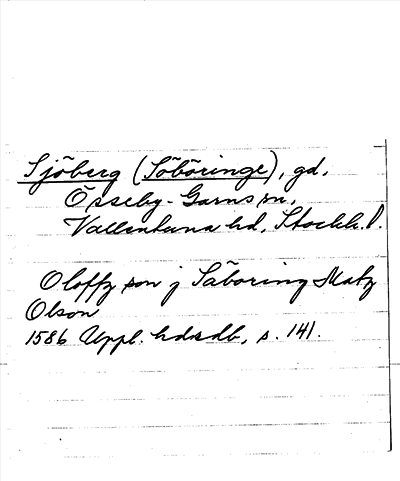 Sjöberg (Söböringe), gd,
Össeby-Garns sn,
Vallentuna hd, Stockh. l.
Oloffz son j Säboring Matz
Olson
1586 Uppl. hdsdb, s. 141.